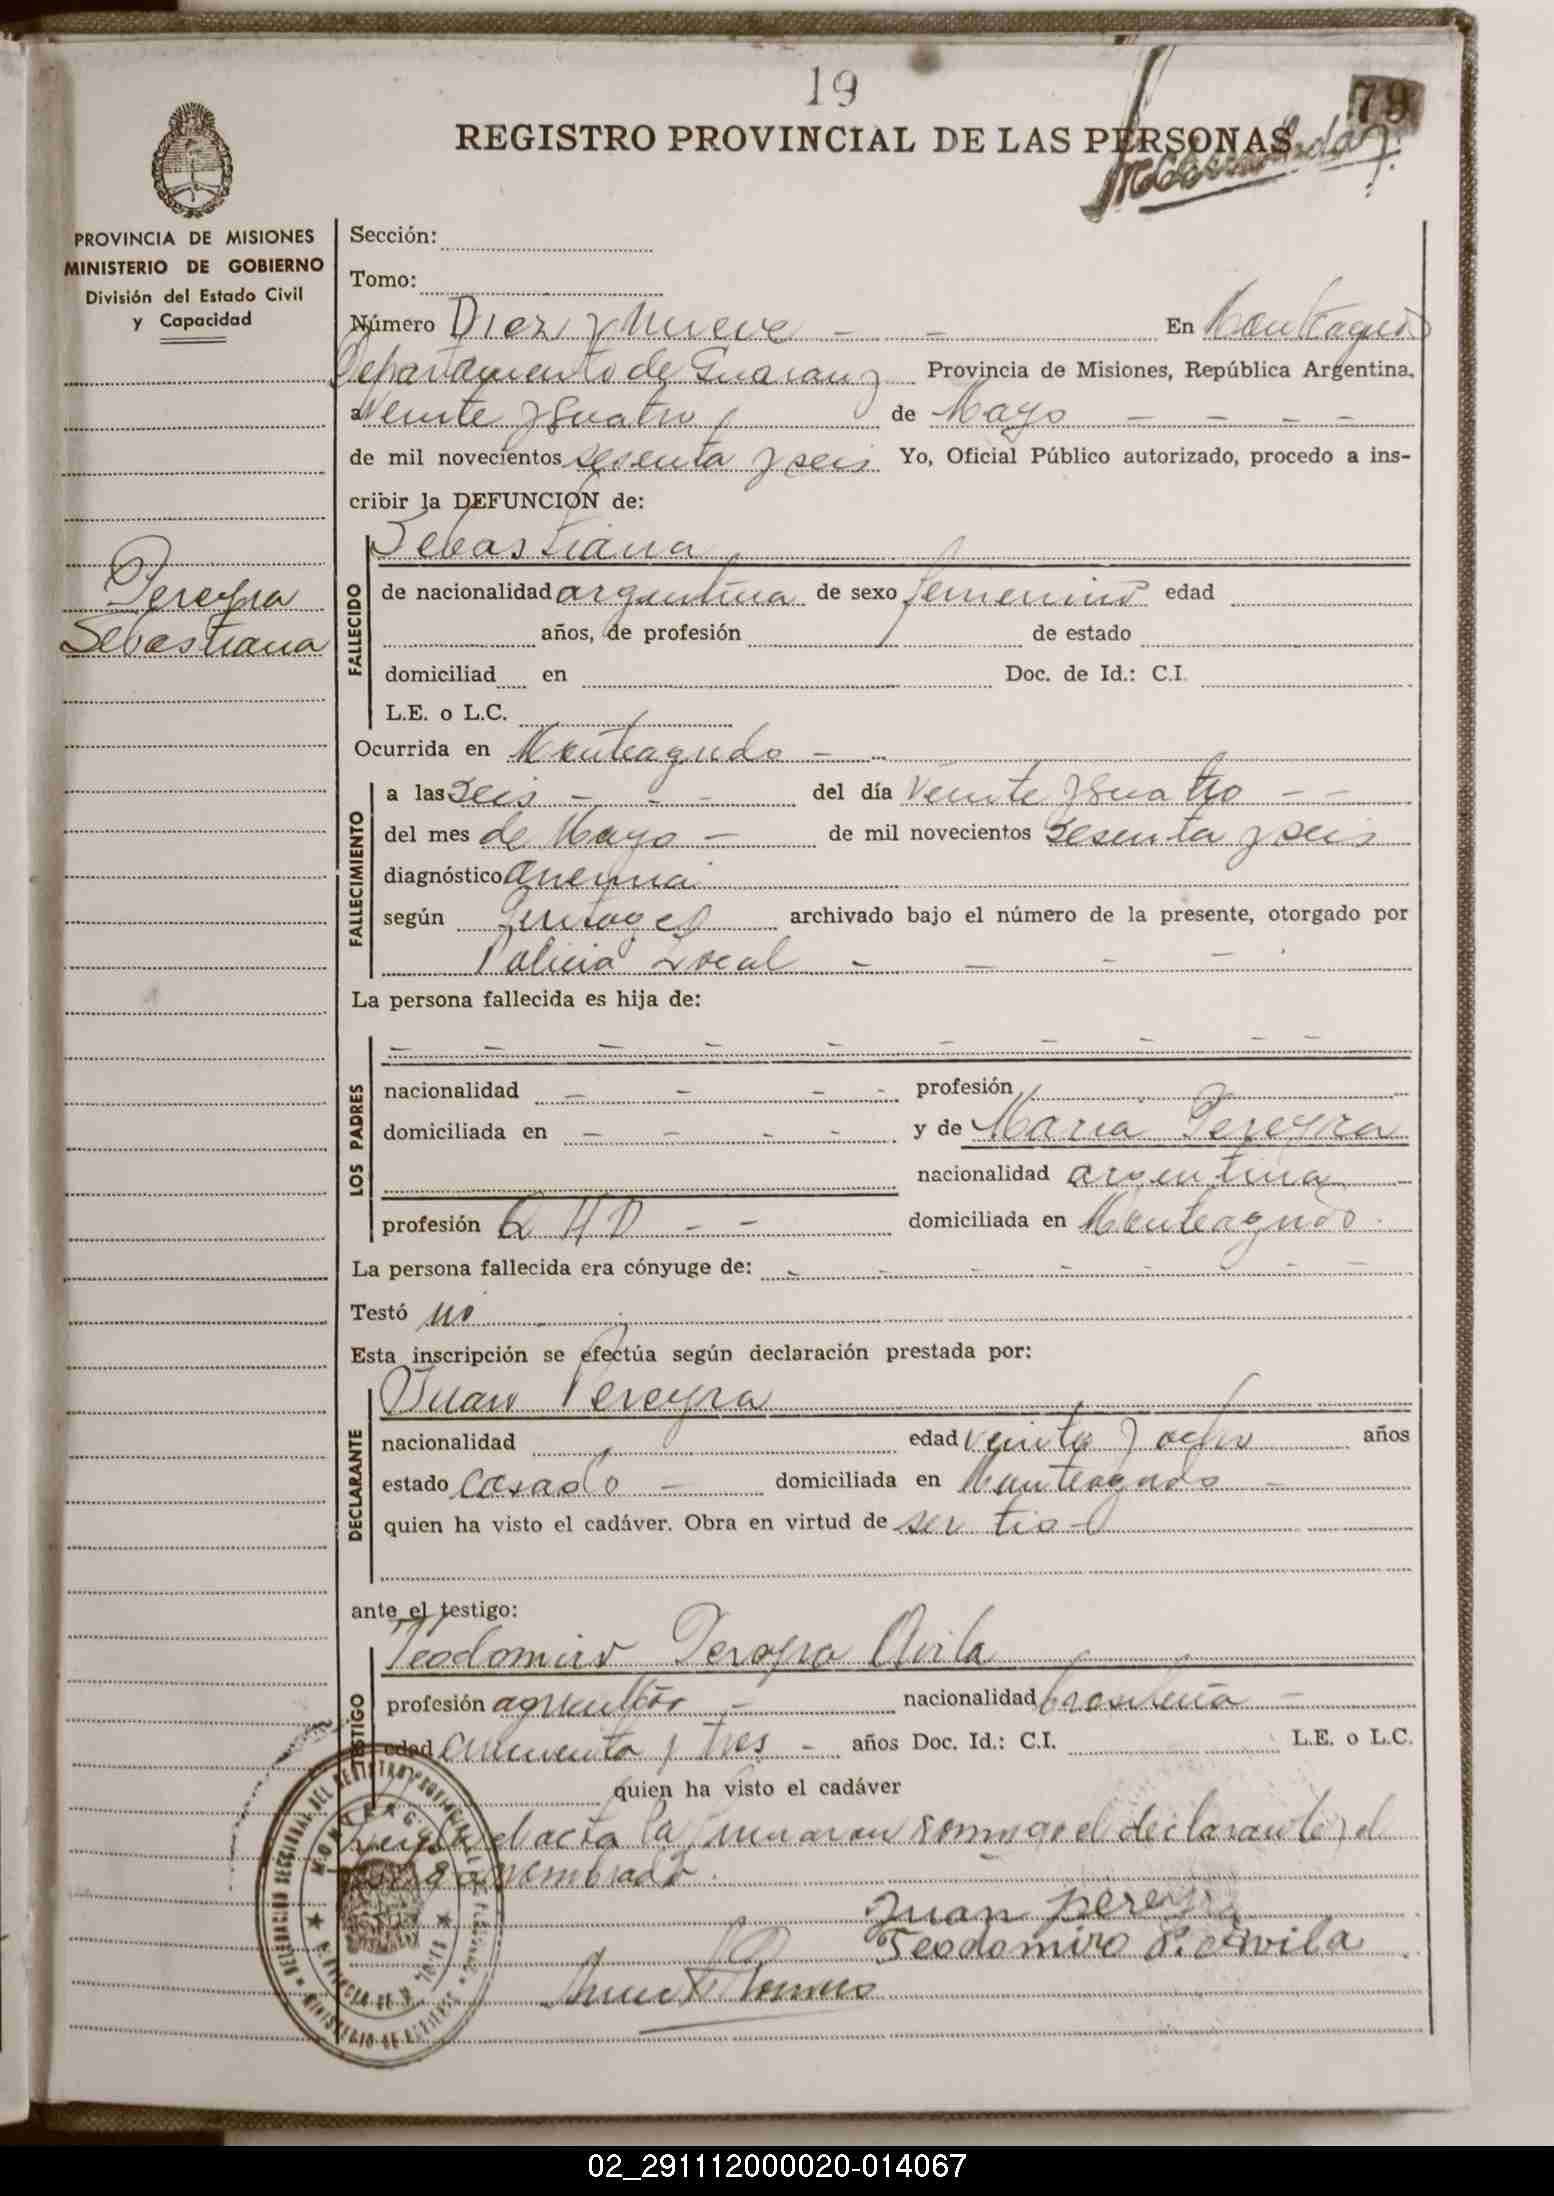 19
79
REGISTRO PROVINCIAL DE LAS PERSONAS
PROVINCIA DE MISIONES
MINISTERIO DE GOBIERNO
División del Estado Civil
y Capacidad
Pereyra
Sebastiana
Sección:
Tomo:
Número Diez y nueve - - En Monteagudo
Departamento de Guarany Provincia de Misiones, República Argentina,
a Veinte y Cuatro de Mayo - - - -
de mil novecientos sesenta y seis Yo, Oficial Público autorizado, procedo a ins-
cribir la DEFUNCION de:
Sebastiana
FALLECIDO
de nacionalidad argentina de sexo femenino edad
años, de profesión de estado
domiciliad en Doc. de Id.: C.I.
L.E. o L.C.
Ocurrida en Monteagudo - -
FALLECIMIENTO
a las Seis - - - del día Veinte y Cuatro - -
del mes de Mayo - de mil novecientos sesenta y seis
diagnóstico anemia
según archivado bajo el número de la presente, otorgado por
Policia Local - - - -
La persona fallecida es hija de:
LOS PADRES
- - - - - - - - - - -
nacionalidad - - - - profesión
domiciliada en - - - - y de Maria Pereyra
nacionalidad argentina
profesión Q H D - - domiciliada en Monteagudo.
La persona fallecida era cónyuge de: - - - - - - -
Testó no
Esta inscripción se efectúa según declaración prestada por:
Juan Pereyra
DECLARANTE
nacionalidad edad veinte y ocho años
estado Casado - domiciliada en Monteagudo -
quien ha visto el cadáver. Obra en virtud de ser tio -
ante el testigo:
Teodomiro Pereyra Avila
TESTIGO
profesión agricultor - nacionalidad brasileña -
edad cincuenta y tres - años Doc. Id.: C.I. L.E. o L.C.
quien ha visto el cadáver
acta la firmaran conmigo el declarante y el
nombrado.
Juan Pereyra
Teodomiro P. Avila
02_291112000020-014067